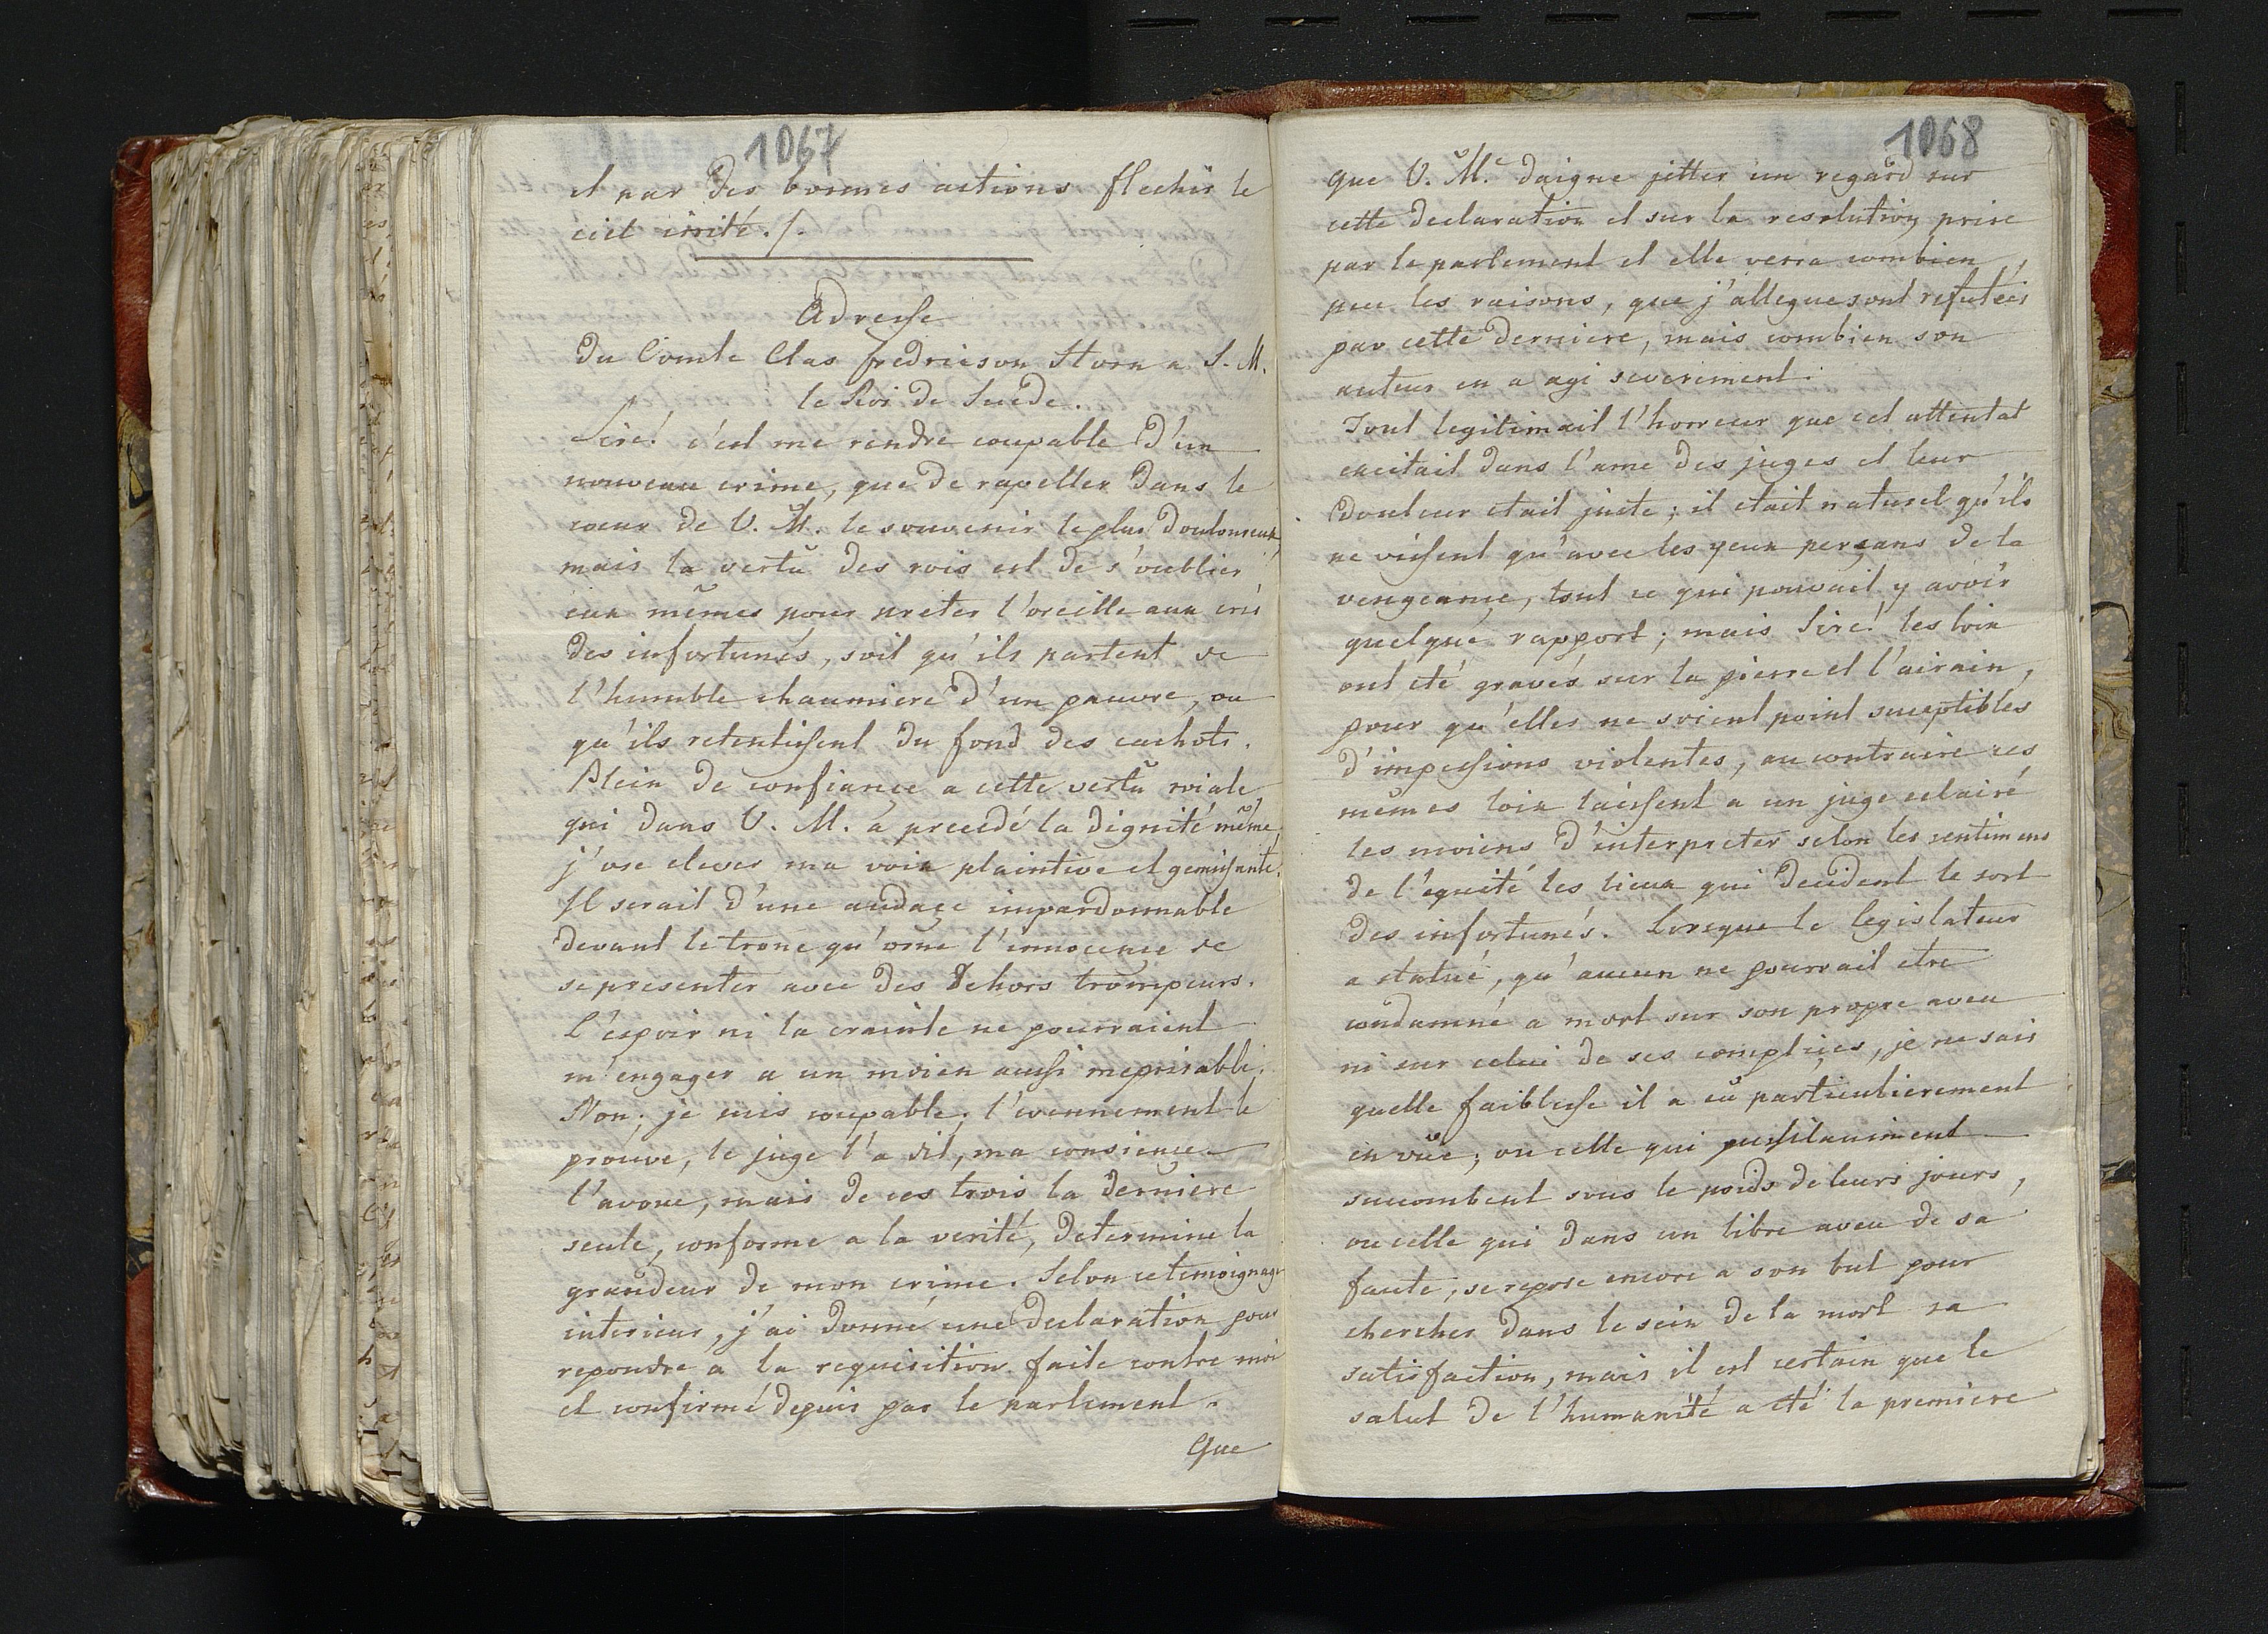 1067
et par des bonnes actions flechir le
ciel irrité./.
Adresse
du Comte Clas fredricson Horn a S. M.
le Roi de Suede.
Sire! c'est me rendre coupable d'un
nouveau crime, que de rapeller dans le
coeur de V. M. le souvenir le plus douloureux,
mais la vertu des rois est de s'oublier
eux mêmes pour preter l'oreille aux cris
des infortunés, soit qu'ils partent de
l'humble chaumiere d'un pauvre, ou
qu'ils retentissent du fond des cachots.
Plein de confiance a cette vertu roiale
qui dans V. M. a precedé la dignité même,
j'ose elever ma voix plaintive et gemissante.
Il serait d'une audace impardonnable
devant le trone qu'orne l'innocence de
se presenter avec des dehors trompeurs.
L'espoir ni la crainte ne pourraient
m'engager a un moien aussi meprisable.
Non; je suis coupable; l'evennement le
prouve, le juge l'a dit, ma consience
l'avoue, mais de ces trois la derniere
seule, conforme a la verité, determine la
grandeur de mon crime. Selon ce temoignage
interieur, j'ai donné une declaration pour
repondre a la requisition faite contre moi
et confirmé depuis par le parlement.
Que
1068
que V. M. daigne jetter un regard sur
cette declaration et sur la resolution prise
par le parlement et elle verra combien
peu les raisons, que j'allegue sont refutées
par cette derniere, mais combien son
auteur en a agi severement.
Tout legitimait l'horreur que cet attentat
excitait dans l'ame des juges et leur
douleur etait juste; il etait naturel qu'ils
ne vissent qu'avec les yeux perçans de la
vengeance, tout ce qui pouvait y avoir
quelque rapport; mais Sire! les loix
ont eté gravés sur la pierre et l'airain,
pour qu'elles ne soient point suceptibles
d'impressions violentes, au contraire ces
mêmes loix laissent a un juge eclairé
les moiens d'interpreter selon les sentimens
de l'equité les lieux qui decident le sort
des infortunés. Lorsque le legislateur
a statué, qu'aucun ne pourrait etre
condamné a mort sur son propre aveu
ni sur celui de ses complices, je ne sais
quelle faiblesse il a eû particulierement
en vûe; ou celle qui pussilaniment
sucombent sous le poids de leurs jours,
ou celle qui dans un libre aveu de sa
faute, se repose encore a son but pour
chercher dans le sein de la mort sa
satisfaction, mais il est certain que le
salut de l'humanité a eté la premiere